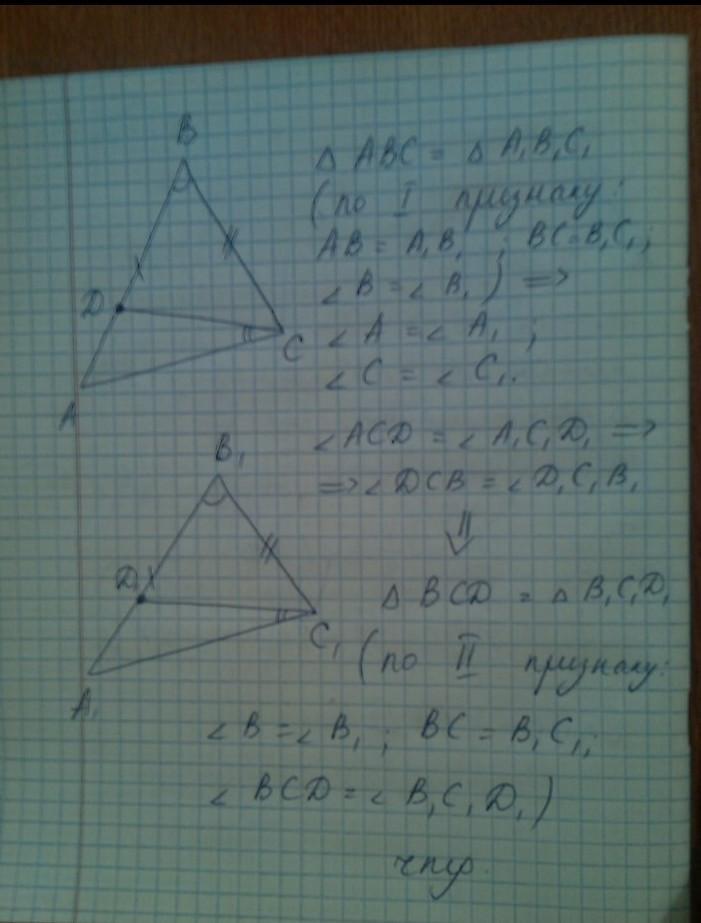 B
Δ ABC = Δ A₁B₁C₁
(по I признаку:
AB = A₁B₁ ; BC = B₁C₁;
∠ B = ∠ B₁) =>
D
∠ A = ∠ A₁ ;
C
∠ C = ∠ C₁.
A
∠ACD = ∠A₁C₁D₁ =>
B₁
=> ∠DCB = ∠D₁C₁B₁
⇓
D₁
Δ BCD = Δ B₁C₁D₁
C₁
(по II признаку:
A₁
∠ B = ∠ B₁ ; BC = B₁C₁;
∠ BCD = ∠ B₁C₁D₁)
чтд.